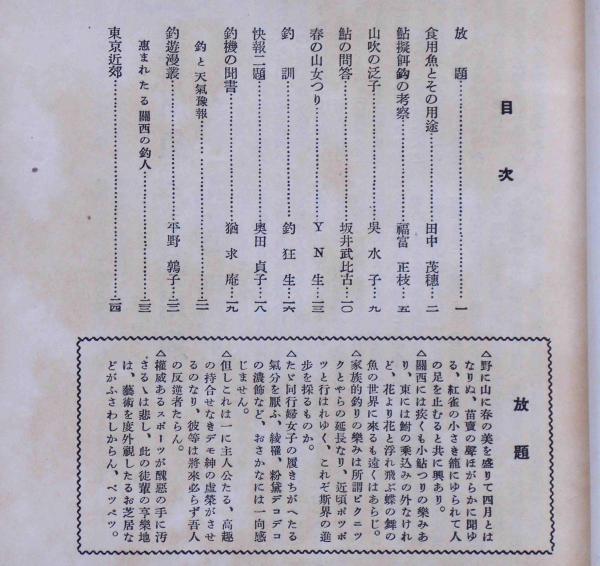 目次
放題……一
食用魚とその用途……田中茂穗……二
鮎擬餌鈎の考察……福富正枝……五
山吹の泛子……吳水子……九
鮎の問答……坂井武比古……一〇
春の山女つり……YN生……一三
釣訓……釣狂生……一六
快報二題……奥田貞子……一八
釣機の聞書……猶求庵……一九
釣と天氣豫報……二一
釣遊漫叢……平野鶉子……二三
惠まれたる關西の釣人……二三
東京近郊……二四
放題
△野に山に春の美を盛りて四月とは
なりぬ、苗賣の聲ほがらかに聞ゆ
る、紅雀の小さき籠にゆられて人
の足を止むると共に興あり。
△關西には疾くも小鮎つりの樂みあ
り、東には鮒の乘込みの外なけれ
ど、花より花と浮れ飛ぶ蝶の舞の
魚の世界に來るも遠くはあらじ。
△家族的釣りの樂みは所謂ピクニツ
クとやらの延長なり、近頃ボツボ
ツと行はれゆく、これぞ斯界の進
歩を採るものか。
△たゞ同行婦女子の履きちがへたる
氣分を厭ふ、綾羅、粉黛デコデコ
の濃飾など、おさかなには一向感
じません。
△但しこれは一に主人公たる、高趣
の持合せなきデモ紳の虛榮がさせ
るのなり、彼等は將來必らず吾人
の反逆者たらん。
△權威あるスポーツが醜惡の手に汚
さるゝは悲し、此の徒輩の享樂地
は、藝術を度外視したるお芝居な
どがふさわしからん、ベツベツ。